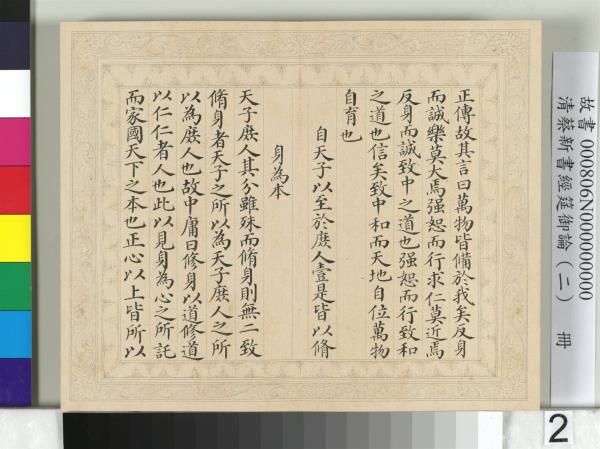 正傳故其言曰萬物皆備於我矣反身
而誠樂莫大焉强恕而行求仁莫近焉
反身而誠致中之道也强恕而行致和
之道也信矣致中和而天地自位萬物
自育也
自天子以至於庶人壹是皆以脩
身為本
天子庶人其分雖殊而脩身則無二致
脩身者天子之所以為天子庶人之所
以為庶人也故中庸曰修身以道修道
以仁仁者人也此以見身為心之所託
而家國天下之本也正心以上皆所以
故書 000806N000000000
清蔡新書經筵御論（二） 冊
2